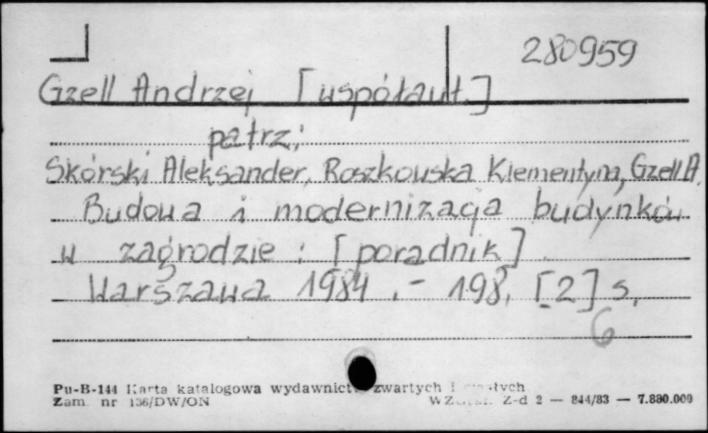 280959
Gzell Andrzej [współaut.]
patrz:
Skórski Aleksander, Roszkowska Klementyna, Gzell A.
Budowa i modernizacja budynków
w zagrodzie : [poradnik]
Warszawa 1984 . – 198, [2] s.
6
Pu-B-144 Karta katalogowa wydawnictw zwartych i
Zam. nr 136/DW/ON Z-d 2 — 844/83 — 7.880.000